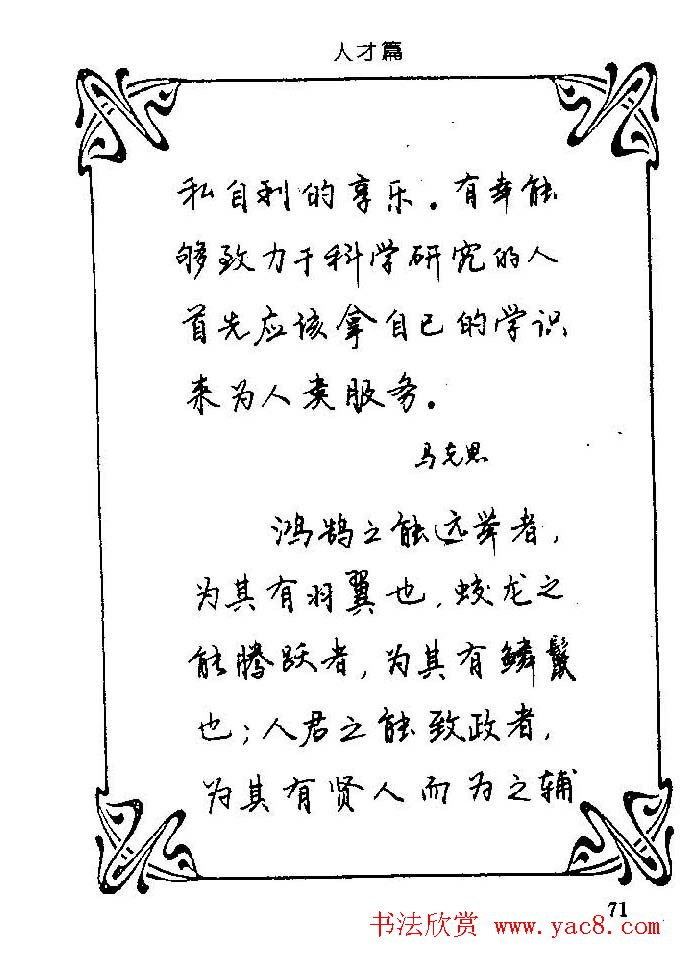 人才篇
私自利的享乐。有幸能
够致力于科学研究的人
首先应该拿自己的学识
来为人类服务。
马克思
鸿鹄之能远举者，
为其有羽翼也，蛟龙之
能腾跃者，为其有鳞鬣
也；人君之能致政者，
为其有贤人而为之辅
71
书法欣赏 www.yac8.com